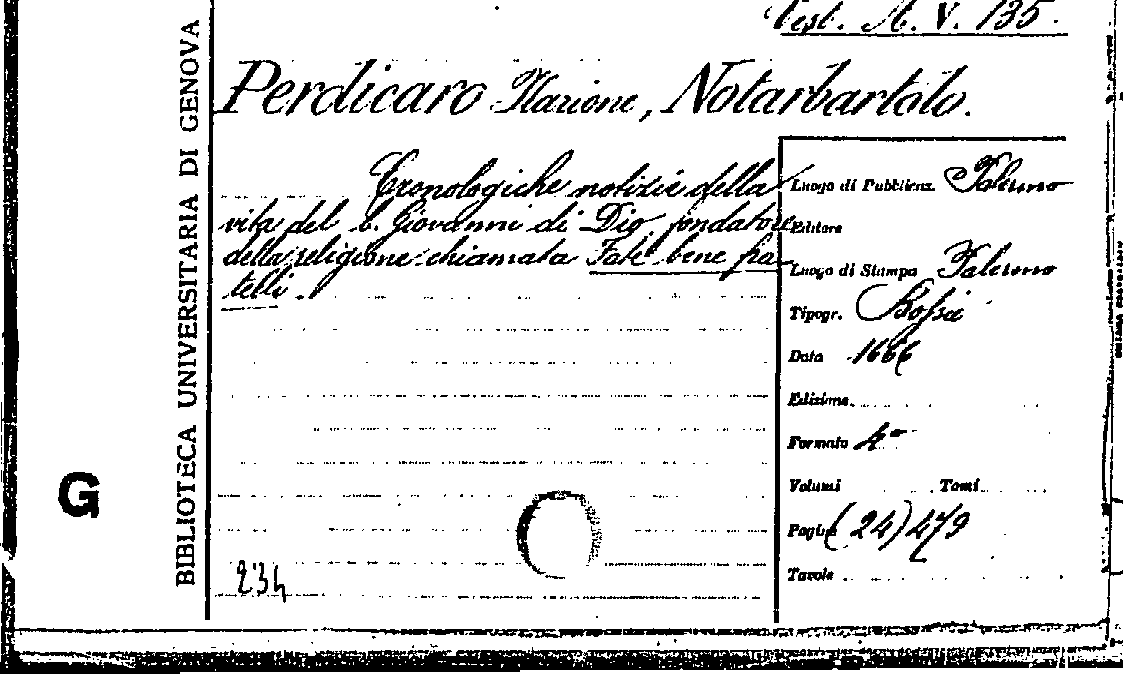 Test. A. V. 135.
Perdicaro Ilarione, Notarbartolo.
Cronologiche notizie della
vita del b. Giovanni di Dio fondatore
della religione chiamata Fate bene fra
telli.
Luogo di Pubblicaz. Palermo
Editore
Luogo di Stampa Palermo
Tipogr. Bossio
Data 1666
Edizione
Formato 4°
Volumi Tomi
Pagine (24) 479
Tavole
234
BIBLIOTECA UNIVERSITARIA DI GENOVA
G